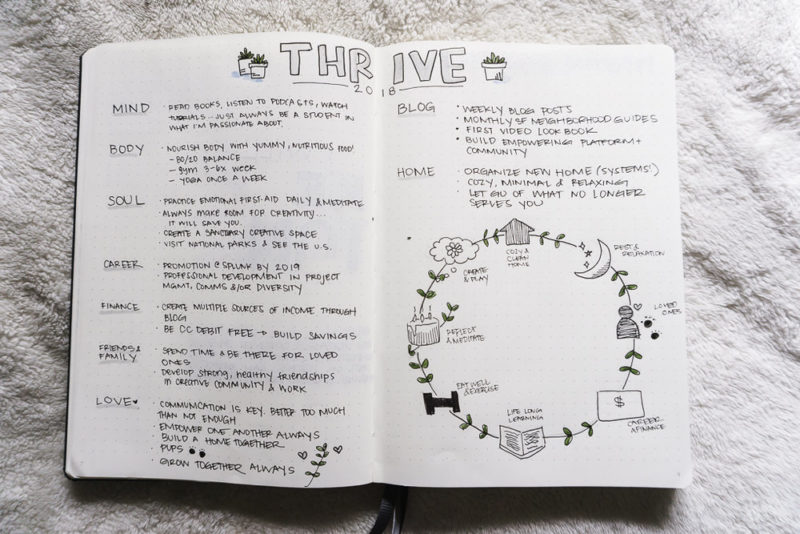 THRIVE
2018
MIND
· READ BOOKS, LISTEN TO PODCASTS, WATCH
TUTORIALS...JUST ALWAYS BE A STUDENT IN
WHAT I'M PASSIONATE ABOUT.
BODY
· NOURISH BODY WITH YUMMY, NUTRITIOUS FOOD!
- 80/20 BALANCE
- gym 3-6x WEEK
- YOGA ONCE A WEEK
SOUL
· PRACTICE EMOTIONAL FIRST-AID DAILY & MEDITATE
· ALWAYS MAKE ROOM FOR CREATIVITY...
IT WILL SAVE YOU.
· CREATE A SANCTUARY CREATIVE SPACE
· VISIT NATIONAL PARKS & SEE THE U.S.
CAREER
· PROMOTION @ SPLUNK BY 2019
· PROFESSIONAL DEVELOPMENT IN PROJECT
MGMT, COMMS &/OR DIVERSITY
FINANCE
· CREATE MULTIPLE SOURCES OF INCOME THROUGH
BLOG
· BE CC DEBIT FREE → BUILD SAVINGS
FRIENDS &
FAMILY
· SPEND TIME & BE THERE FOR LOVED
ONES
· Develop strong, healthy friendships
in CREATIVE COMMUNITY & WORK
LOVE♥
· COMMUNICATION IS KEY. BETTER TOO MUCH
THAN NOT ENOUGH
· EMPOWER ONE ANOTHER ALWAYS
· BUILD A HOME TOGETHER
· PUPS
· GROW TOGETHER ALWAYS
BLOG
· WEEKLY BLOG POSTS
· MONTHLY SF NEIGHBORHOOD GUIDES
· FIRST VIDEO LOOK BOOK
· BUILD EMPOWERING PLATFORM +
COMMUNITY
HOME
· ORGANIZE NEW HOME (SYSTEMS!)
· COZY, MINIMAL & RELAXING
· LET GO OF WHAT NO LONGER
SERVES YOU
COZY &
CLEAN
HOME
REST &
RELAXATION
LOVED
ONES
$
CAREER
& FINANCE
LIFE LONG
LEARNING
EAT WELL
& EXERCISE
REFLECT
& MEDITATE
CREATE
& PLAY